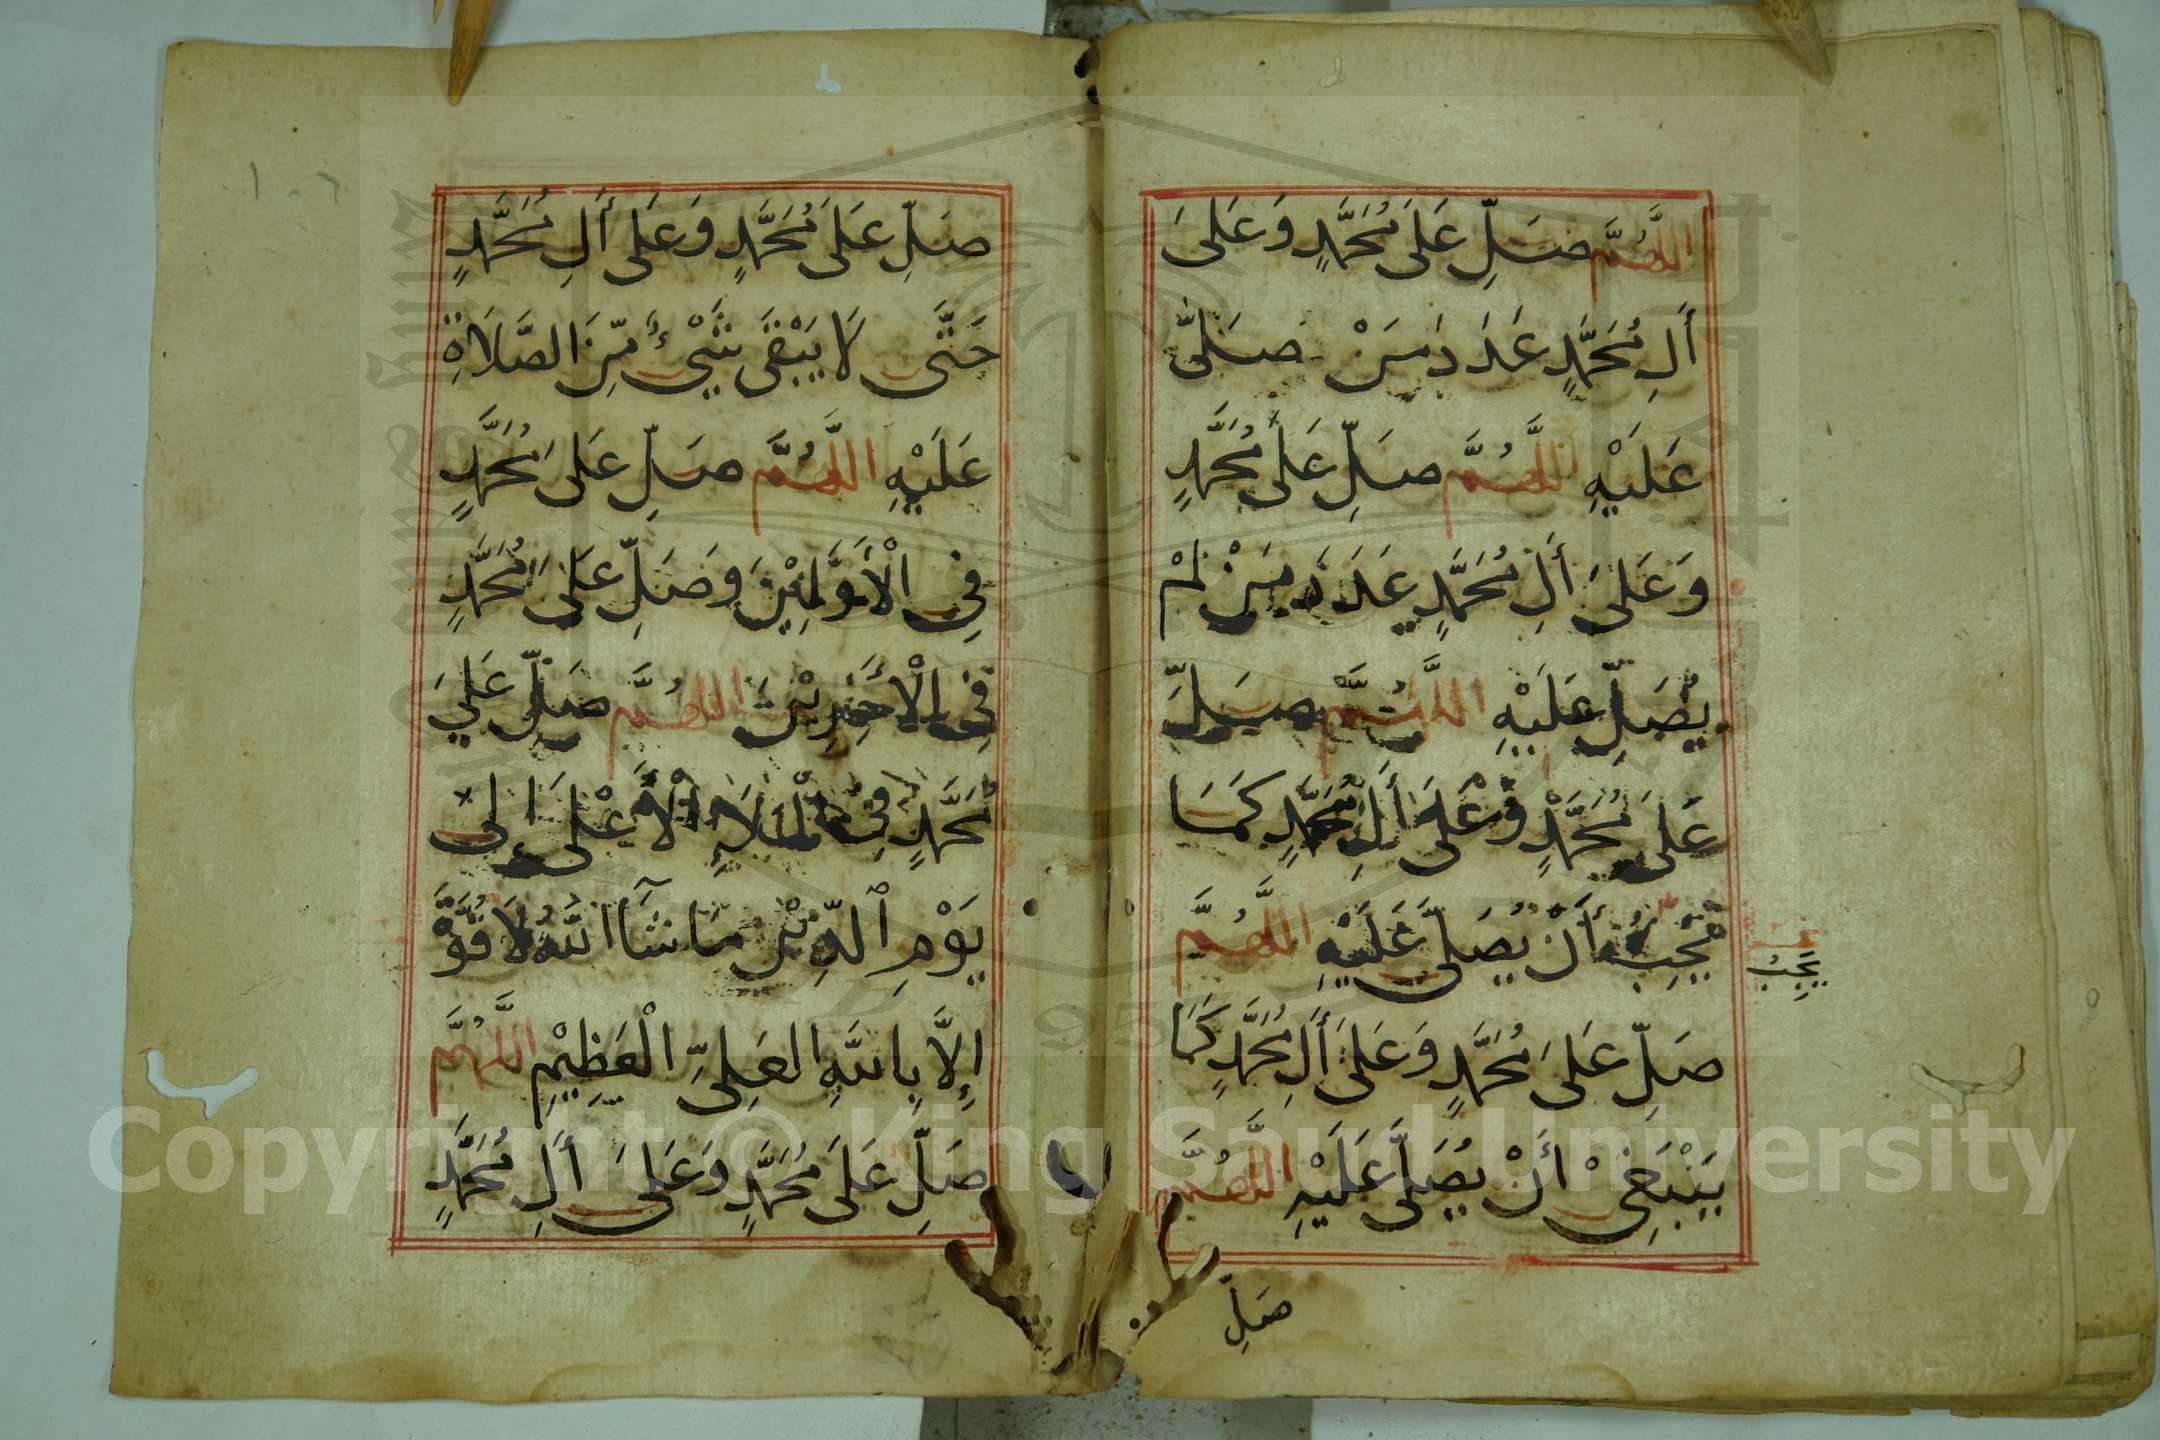 اللَّهُمَّ صَلِّ عَلَى مُحَمَّدٍ وَعَلَى
أَلِ مُحَمَّدٍ عَدَدَ مَنْ صَلَّى
عَلَيْهِ اللَّهُمَّ صَلِّ عَلَى مُحَمَّدٍ
وَعَلَى أَلِ مُحَمَّدٍ عَدَدَ مَنْ لَمْ
يُصَلِّ عَلَيْهِ اللَّهُمَّ صَلِّ
عَلَى مُحَمَّدٍ وَعَلَى أَلِ مُحَمَّدٍ كَمَا
تُحِبُّ أَنْ يُصَلَّى عَلَيْهِ اللَّهُمَّ
يَجِبُ
صَلِّ عَلَى مُحَمَّدٍ وَعَلَى أَلِ مُحَمَّدٍ كَمَا
يَنْبَغِي أَنْ يُصَلَّى عَلَيْهِ اللَّهُمَّ
صَلِّ
١٠٦
صَلِّ عَلَى مُحَمَّدٍ وَعَلَى أَلِ مُحَمَّدٍ
حَتَّى لَا يَبْقَى شَيْئٌ مِّنَ الصَّلَاةِ
عَلَيْهِ اللَّهُمَّ صَلِّ عَلَى مُحَمَّدٍ
فِي الْأَوَّلِيْنَ وَصَلِّ عَلَى مُحَمَّدٍ
فِي الْأَخِرِيْنَ اللَّهُمَّ صَلِّ عَلَى
مُحَمَّدٍ فِي الْمَلَاءِ الْأَعْلَى إِلَى
يَوْمِ الدِّيْنِ مَا شَآءَ اللَّهُ لَا قُوَّةَ
إِلَّا بِاللَّهِ الْعَلِيِّ الْعَظِيْمِ اللَّهُمَّ
صَلِّ عَلَى مُحَمَّدٍ وَعَلَى أَلِ مُحَمَّدٍ
Copyright © King Saud University